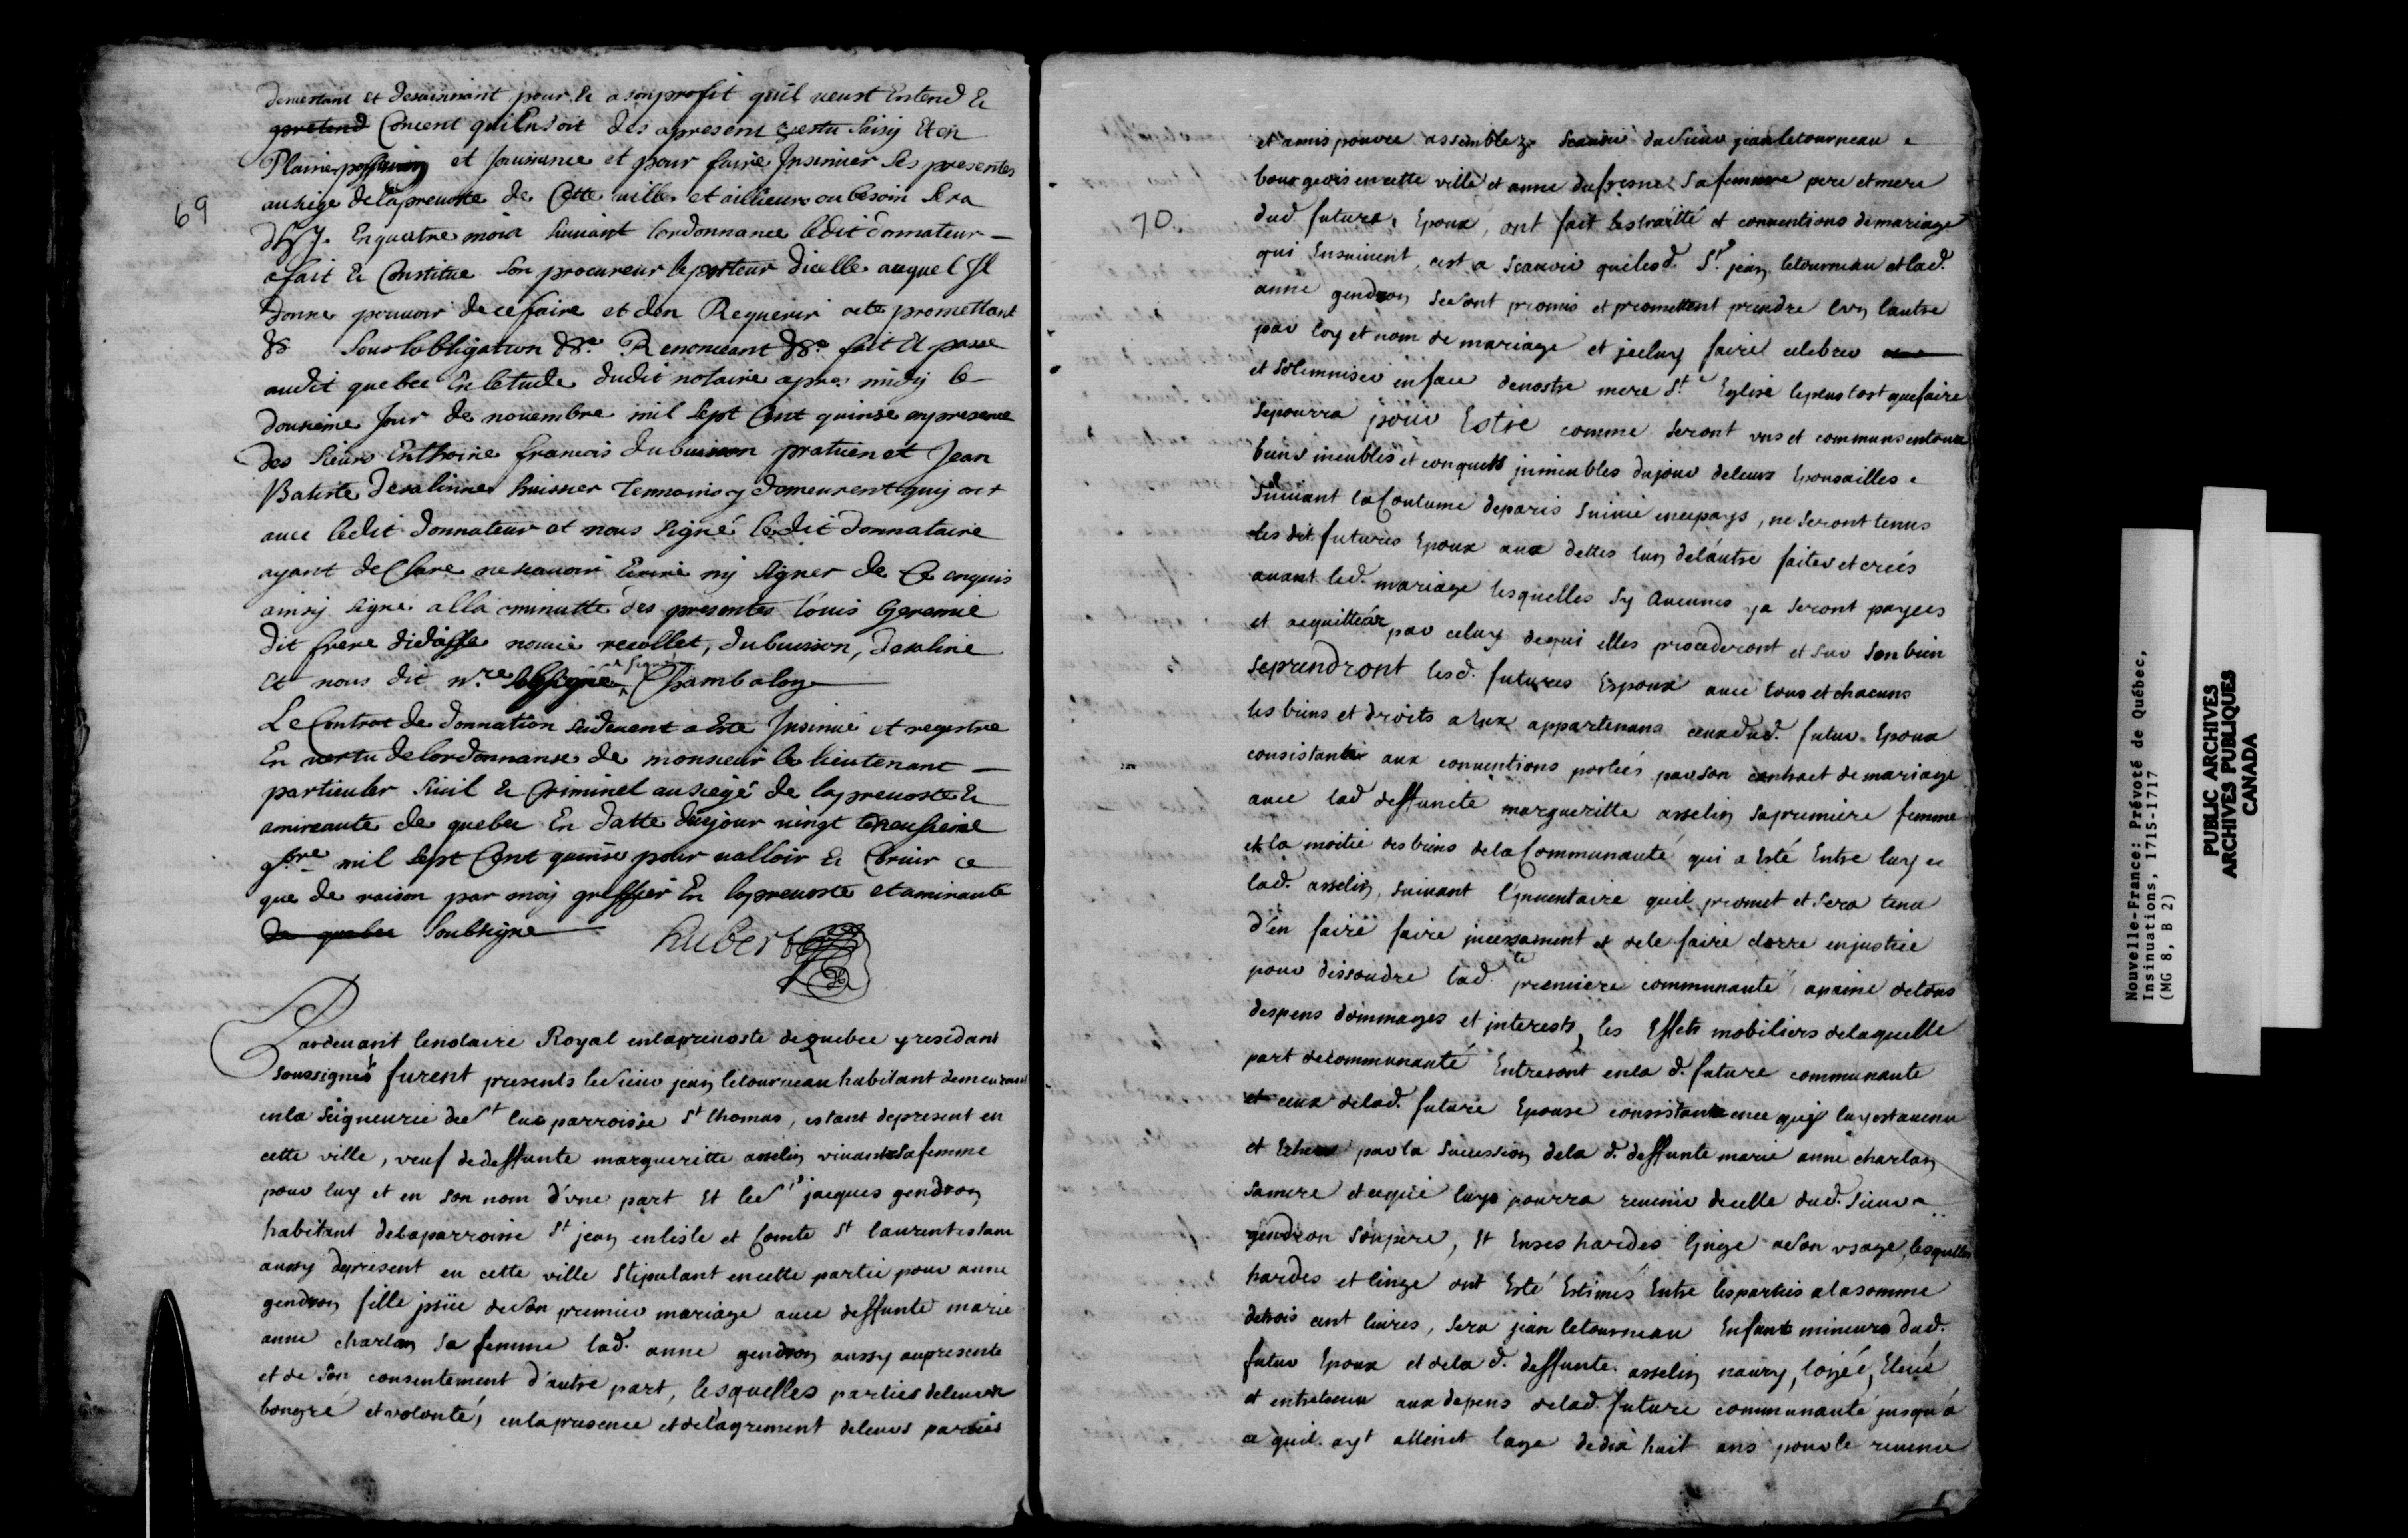 69
demettant et desaisinant pour & a son profit quil veust Entend &
pretend Concent quil en soit des apresent vestu Saisy Et en
Plaine possession et Jouissance et pour faire Insinuer Ses presentes
au siege de la prevoste de Cette ville et ailleurs ou besoin Sera
dhuy. En quatre mois Suivant lordonnance ledit donnateur —
a fait & Constitue Son procureur le porteur dicelle auquel Il
donne pouvoir de ce faire et den Requerir acte promettant
&c Sous lobligation &ca Renonceant &ca fait et passe
audit quebec En letude dudit notaire apres midy le
dousieme Jour de novembre mil Sept Cent quinse en presence
des Sieurs Enthoine francois dubuisson praticien et Jean
Batiste desalinne huissier temmoins y demeurent quy ont
avec ledit donnateur et nous Signé ledit donnataire
ayant declare ne scavoir Ecrire ny Signer de Ce enquis
ainsy Signé alla minutte des presentes Louis Geremie
dit frere didasse novice recollet, dubuisson, desaline
et nous dit nre Soussigné a signé Chambalon
Le Contrat de donnation Sidevent a Este Insinué et registre
En vertu de lordonnanse de monsieur le lieutenant —
particulier Sivil & Criminel au siege de la prevoste &
amireaute de quebec En datte du jour vingt
9bre mil Sept Cent quinse pour valloir & Servir ce
que de raison par moy greffier En la prevoste et amiraute
de quebec Soubsigne
hubert
Pardevant le notaire Royal en la prevoste de quebec y residant
soussigné furent presents le Sieur jean letourneau habitant demeurant
en la Seigneurie de St luc parroisse St thomas, estant de present en
cette ville, veuf de deffunte margueritte asselin vivante sa femme
pour luy et en son nom d'une part Et le Sr jacques gendron
habitant de la parroisse St jean en lisle et Comté St laurent estant
aussy de present en cette ville Stipulant en cette partie pour anne
gendron fille issüe de Son premier mariage avec deffunte marie
anne charlan Sa femme lad. anne gendron aussy a ce presente
et de Son consentement d'autre part, lesquelles parties de leurs
bongré et volonté, en la presence et de lagrement de leurs parens
70
et amis pour ce assemblez Scavoir du Sieur jean letourneau
bourgeois en cette ville et anne dufresne Sa femme pere et mere
dud. futurs Epoux, ont fait les traitté et conventions de mariage
qui Ensuivent, cest a Scavoir que led. Sr. jean letourneau et lad.
anne gendron se sont promis et promettent prendre lun lautre
par loy et nom de mariage et jceluy faire celebrer
et Solemniser en face de nostre mere Ste Eglise le plus tost que faire
se pourra pour Estre comme Seront uns et communs en tous
biens meubles et conquets jmmeubles du jour de leurs Epousailles
Suivant la Coutume de paris Suivie en ce pays, ne Seront tenus
les dit futurs Epoux aux dettes lun de lautre faites et creés
avant led. mariage lesquelles Sy Aucunes ya Seront payees
et acquittéez par celuy de qui elles procederont et Sur Son bien
se prendront lesd. futures Espoux avec tous et chacuns
les biens et droits a Eux appartenans ceux dud. futur Epoux
consistants aux conventions portées par Son contract de mariage
avec lad deffuncte margueritte asselin Sa premiere femme
et la moitié des biens de la Communauté qui a Esté Entre luy et
lad. asselin, Suivant l'Inventaire quil promet et Sera tenu
d'en faire faire jncessament et de le faire clorre en justice
pour dissoudre lad. premiere communauté, a paine de tous
despens dommages et interests, les Effets mobiliers de laquelle
part de communauté Entreront en la d. future communauté
et ceux de lad. future Epouse consistants en ce quy luy est avenu
et Echeus par la Succession de la d. deffunte marie anne charlan
sa mere et ce qui luy pourra revenir de celle dud. Sieur
gendron Son pere, Et En ses hardes linge a Son usage, lesquelles
hardes et linge ont Esté Estimés Entre les parties a la somme
de trois cent livres, Sera jean letourneau Enfant mineurs dud.
futur Epoux et de la d. deffunte asselin noury, logée, Elevé
et entretenu aux depens de lad. future communauté jusqu'à
ce quil ayt atteint lage de dix huit ans pour le revenu
Nouvelle-France: Prévoté de Québec,
Insinuations, 1715-1717
(MG 8, B 2)
PUBLIC ARCHIVES
ARCHIVES PUBLIQUES
CANADA